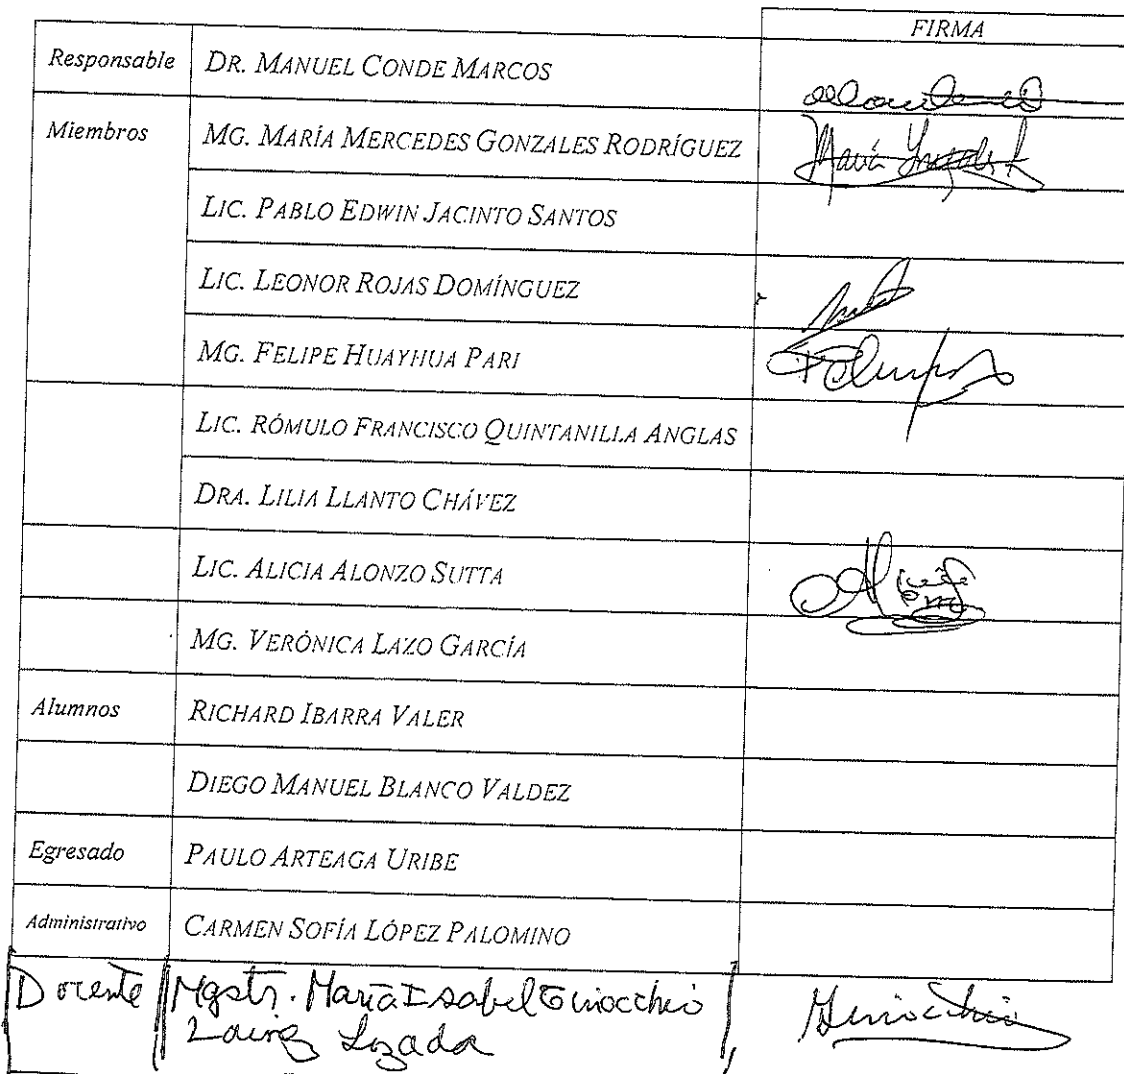 FIRMA
Responsable DR. MANUEL CONDE MARCOS
Miembros MG. MARÍA MERCEDES GONZALES RODRÍGUEZ
LIC. PABLO EDWIN JACINTO SANTOS
LIC. LEONOR ROJAS DOMÍNGUEZ
MG. FELIPE HUAYHUA PARI
LIC. RÓMULO FRANCISCO QUINTANILLA ANGLAS
DRA. LILIA LLANTO CHÁVEZ
LIC. ALICIA ALONZO SUTTA
MG. VERÓNICA LAZO GARCÍA
Alumnos RICHARD IBARRA VALER
DIEGO MANUEL BLANCO VALDEZ
Egresado PAULO ARTEAGA URIBE
Administrativo CARMEN SOFÍA LÓPEZ PALOMINO
Docente Mgstr. María Isabel Guiocchio
Lozada